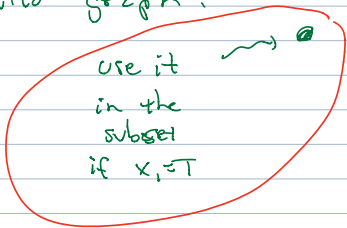 graph.
use it
in the
subset
if x₁=T